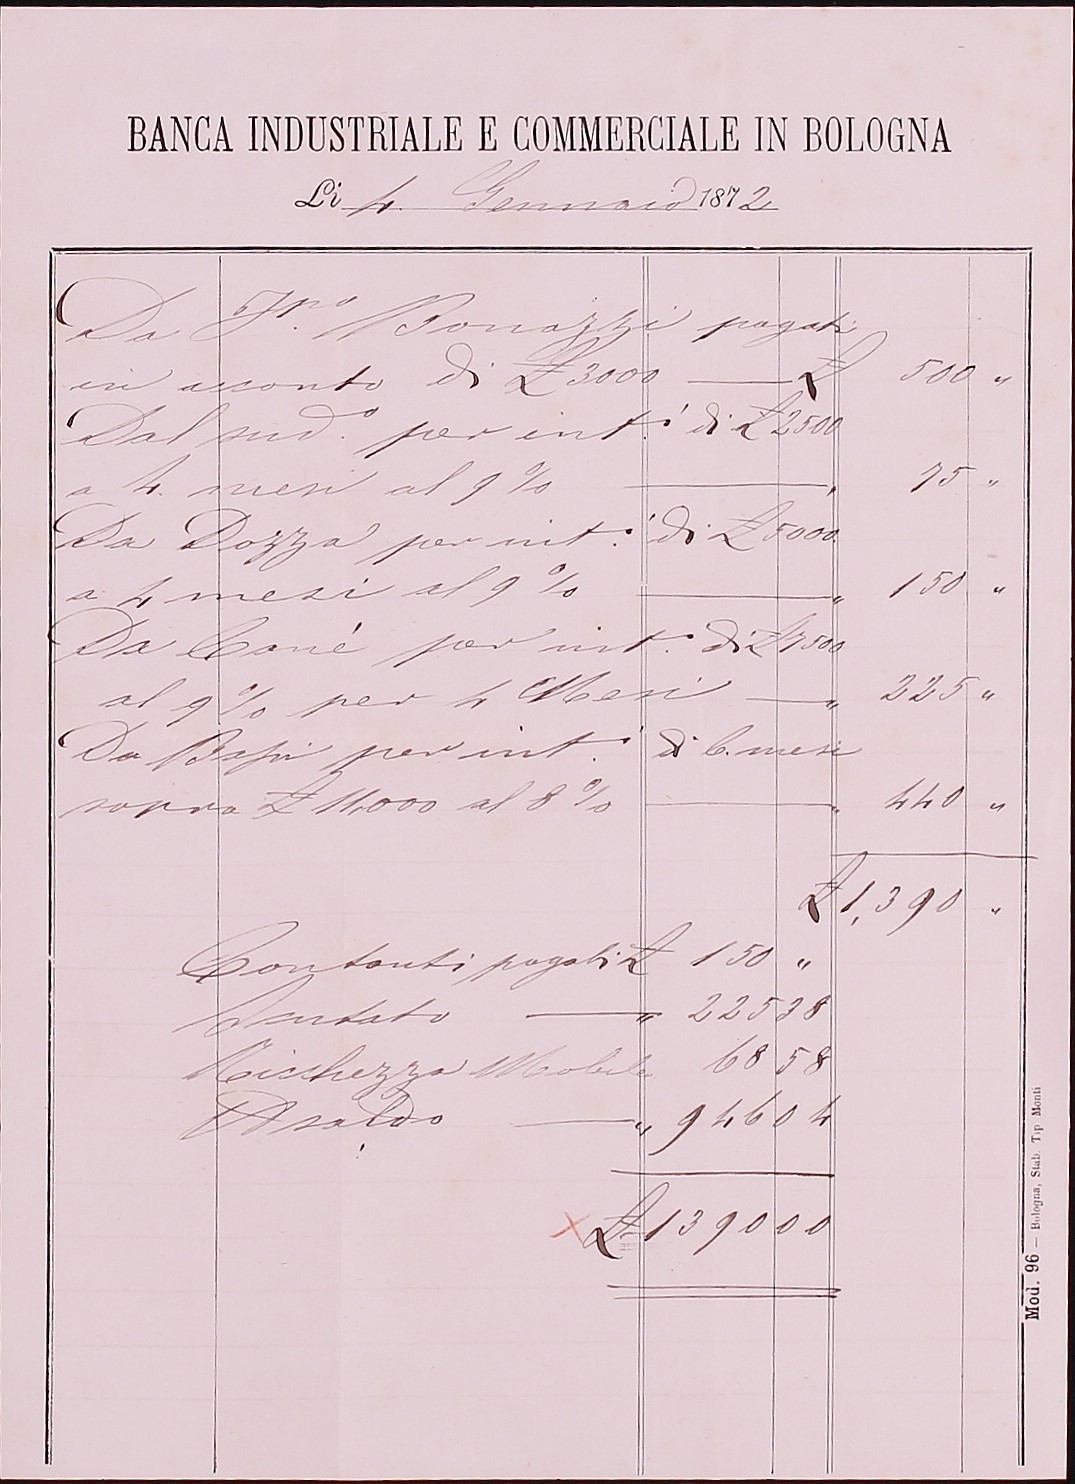 BANCA INDUSTRIALE E COMMERCIALE IN BOLOGNA
Li 4. Gennaio 1872
Da Bonazzi pagati
in acconto di £ 3000 — £ 500 "
Dal sud.° per int.i di £ 2500
a 4. mesi al 9 % — " 75 "
Da Dozza per int.i di £ 5000
a 4 mesi al 9 % — " 150 "
Da Cané per int.i di £ 7500
al 9 % per 4 Mesi — " 225 "
Da per int.i di 6. mesi
sopra £ 11,000 al 8 % — " 440 "
£ 1,390 "
Contanti pagati £ 150 "
— " 225 38
Ricchezza Mobile 68 58
A saldo — " 946 04
£ 1390 00
Mod. 96 — Bologna, Stab. Tip Monti